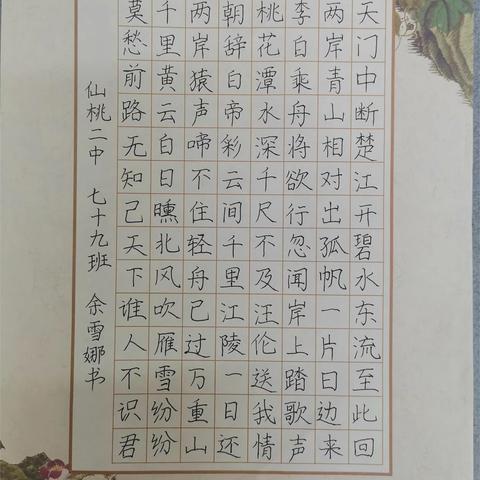 天门中断楚江开碧水东流至此回
两岸青山相对出孤帆一片日边来
李白乘舟将欲行忽闻岸上踏歌声
桃花潭水深千尺不及汪伦送我情
朝辞白帝彩云间千里江陵一日还
两岸猿声啼不住轻舟已过万重山
千里黄云白日曛北风吹雁雪纷纷
莫愁前路无知己天下谁人不识君
仙桃二中 七十九班 余雪娜书